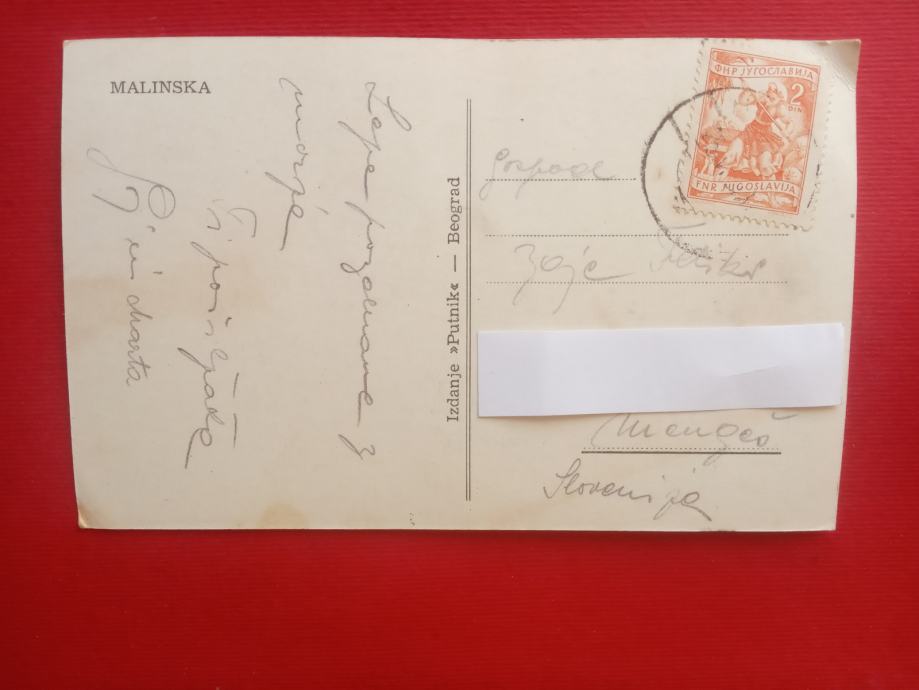 MALINSKA
Lepe pozdrave z
morja
Ti pošiljata
in Marta
Izdanje »Putnik« — Beograd
ФНР ЈУГОСЛАВИЈА
2
DIN
FNR JUGOSLAVIJA
Gospod
Zajc
Mengeš
Slovenija